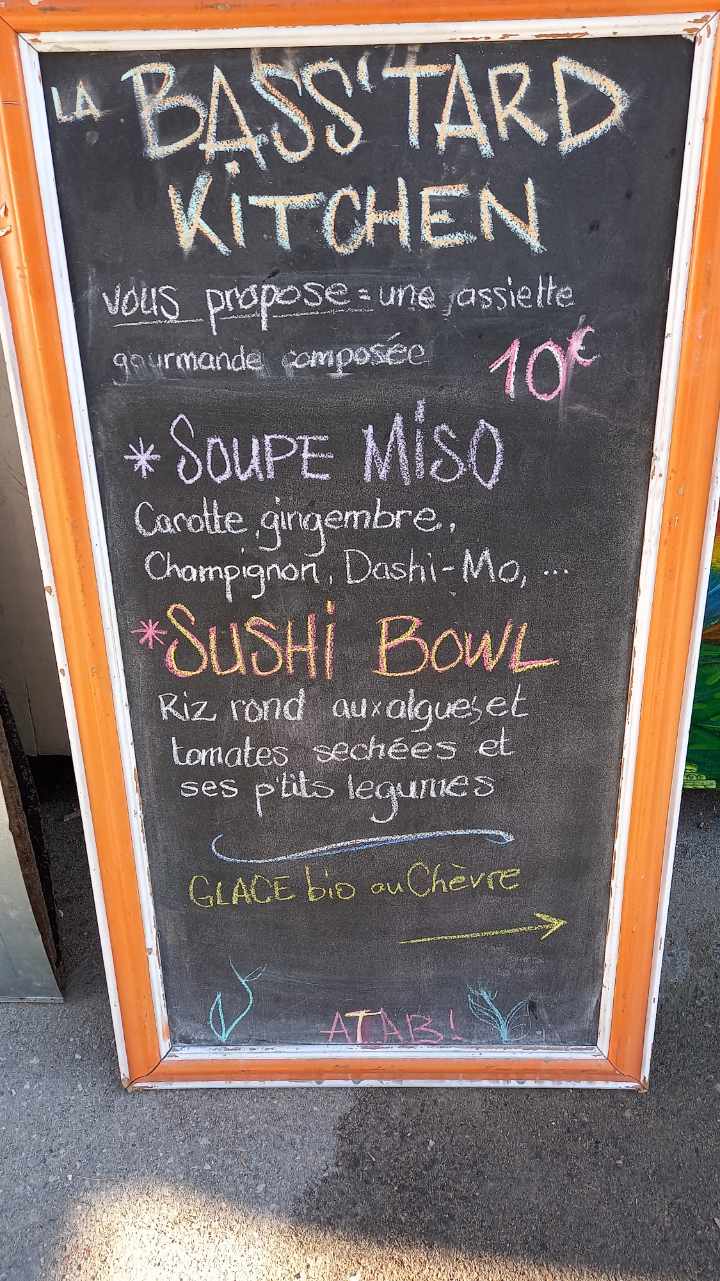 LA BASS'TARD
KITCHEN
vous propose = une assiette
gourmande composée 10€
* SOUPE MISO
Carotte, gingembre,
Champignon, Dashi-Mo, ...
* SUSHI BOWL
Riz rond aux algues et
tomates sechées et
ses p'tits legumes
GLACE bio au Chèvre
ATAB!